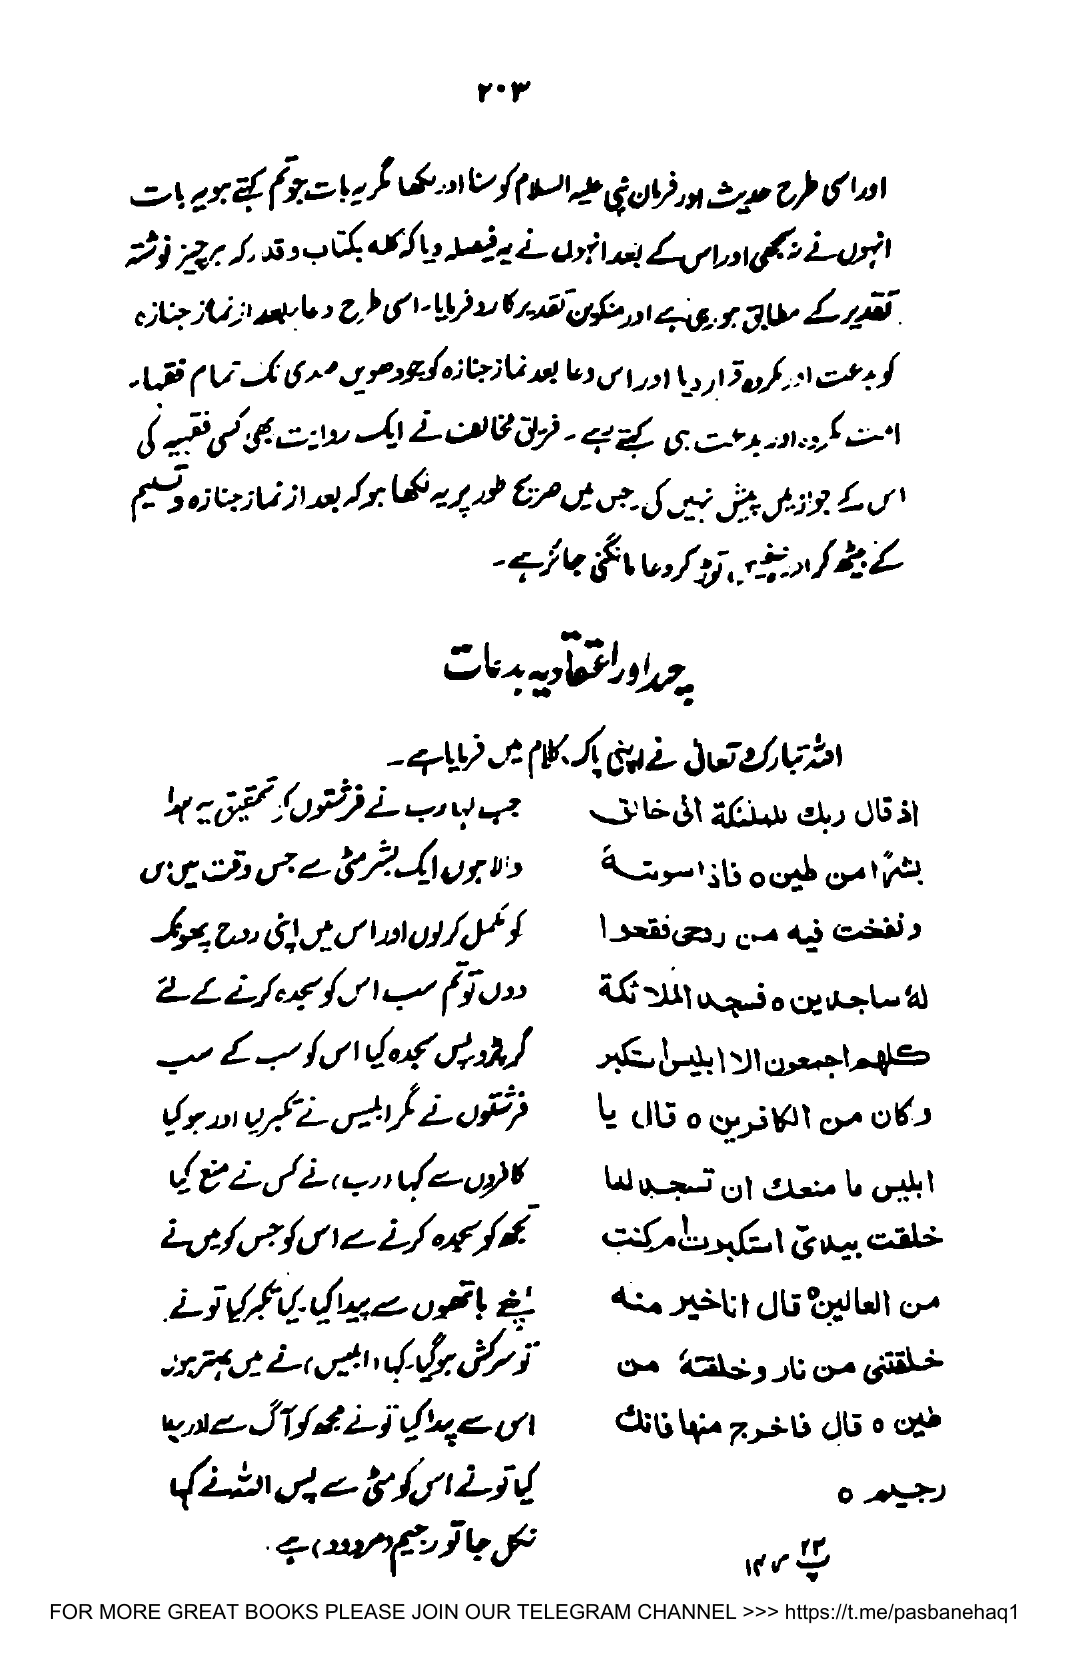 ۲۰۳
اور اسی طرح حدیث اور فرمان نبی علیہ السلام کو سنا اور سکھا مگر یہ بات جو تم کہتے ہو یہ بات
انہوں نے نہ سمجھی اور اس کے بعد انہوں نے یہ فیصلہ دیا کہ کلہ بکتاب وقدر کہ ہر چیز نوشتہ
تقدیر کے مطابق ہو رہی ہے اور منکرین تقدیر کا رد فرمایا۔ اسی طرح دعا بعد از نماز جنازہ
کو بدعت اور مکروہ قرار دیا اور اس دعا بعد نماز جنازہ کو چودھویں صدی تک تمام فقہاء
امت مکروہ اور بدعت ہی کہتے رہے ۔ فریق مخالف نے ایک روایت بھی کسی فقیہ کی
اس کے جواز میں پیش نہیں کی۔ جس میں صریح طور پر یہ لکھا ہو کہ بعد از نماز جنازہ و تسلیم
کے بیٹھ کر اور صفیں توڑ کر دعا مانگنی جائز ہے۔
چند اور اعتقادیہ بدعات
اللہ تبارک تعالیٰ نے اپنی پاک کلام میں فرمایا ہے۔
اذ قال ربك للملئكة انی خالق
بشرًا من طین ہ فاذا سویتہ
ونفخت فیہ من روحی فقعوا
لہٗ ساجدین ہ فسجد الملائکة
کلھم اجمعون الا ابلیس استکبر
وکان من الکافرین ہ قال یا
ابلیس ما منعك ان تسجد لما
خلقت بیدیّ استکبرت ام کنت
من العالین ہ قال انا خیر منہ
خلقتنی من نار وخلقتہٗ من
طین ہ قال فاخرج منھا فانك
رجیم ہ
پ ۲۳ ع ۱۴
جب کہا رب نے فرشتوں کو تحقیق پیدا
والا ہوں ایک بشر مٹی سے جس وقت میں اس
کو مکمل کر لوں اور اس میں اپنی روح پھونک
دوں تو تم سب اس کو سجدہ کرنے کے لئے
گر پڑو پس سجدہ کیا اس کو سب کے سب
فرشتوں نے مگر ابلیس نے تکبر کیا اور ہو گیا
کافروں سے کہا (رب) نے کس نے منع کیا
تجھ کو سجدہ کرنے سے اس کو جس کو میں نے
اپنے ہاتھوں سے پیدا کیا۔ کیا تکبر کیا تو نے
تو سرکش ہو گیا۔ کہا (ابلیس) نے میں بہتر ہوں
اس سے پیدا کیا تو نے مجھ کو آگ سے اور پیدا
کیا تو نے اس کو مٹی سے پس اللہ نے کہا
نکل جا تو رجیم (مردود) ہے۔
FOR MORE GREAT BOOKS PLEASE JOIN OUR TELEGRAM CHANNEL >>> https://t.me/pasbanehaq1